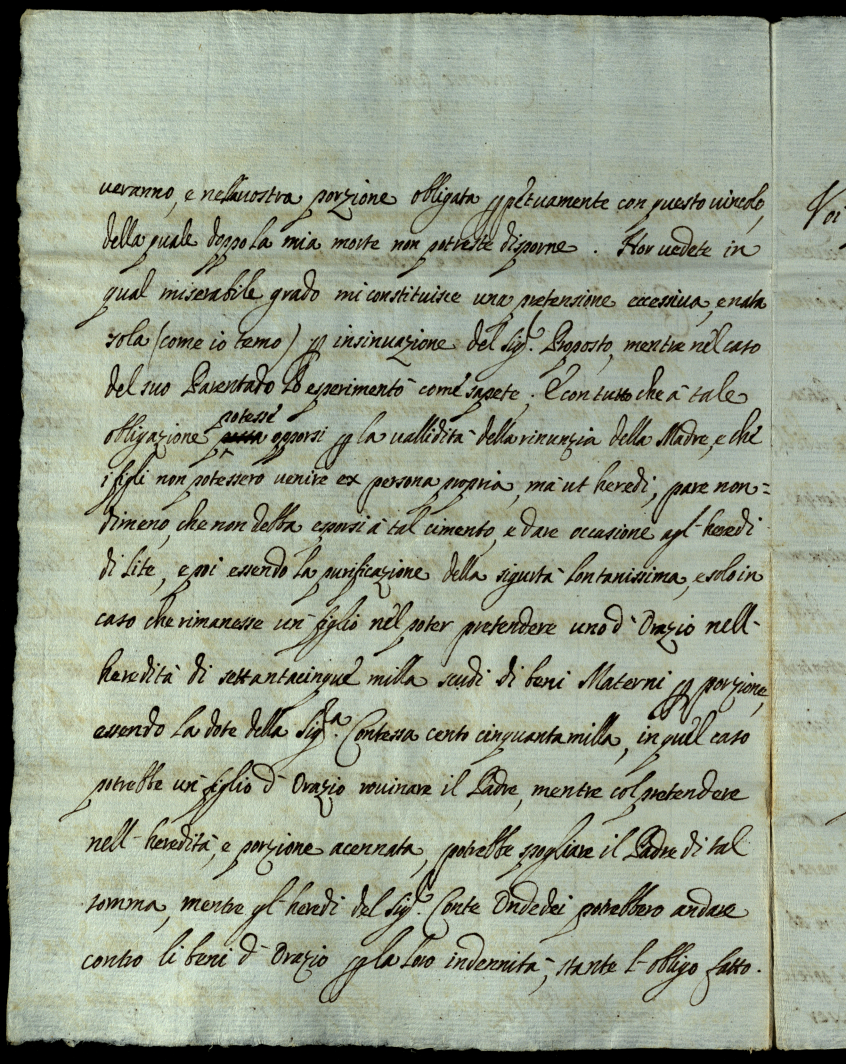 veranno, e nella vostra porzione obligata p petuamente con questo vincolo,
della quale doppo la mia morte non potreste disporne. Hor vedete in
qual miserabile grado mi constituisce una pretensione eccessiva, e nata
sola (come io temo) p insinuazione del Sigr. Proposto, mentre nel caso
del suo Parentado lo esperimentò come sapete. E con tutto che à tale
obligazione potesse opporsi p la vallidità della rinunzia della Madre, e che
i figli non potessero venire ex persona propria, mà ut heredi, pare non=
dimeno, che non debba esporsi à tal cimento, e dare occasione agl' heredi
di lite, e poi essendo la purificazione della sigurtà lontanissima, e solo in
caso che rimanesse un' figlio nel poter pretendere uno d' Orazio nell'
heredità di settantacinque milla scudi di beni Materni p porzione,
essendo la dote della Sigra. Contessa cento cinquanta milla, in quel caso
potrebbe un' figlio d' Orazio rouinare il Padre, mentre col pretendere
nell' heredità, e porzione acennata, potrebbe spogliare il Padre di tal
somma, mentre gl' heredi del Sigr. Conte Ondedei potrebbero andare
contro li beni d' Orazio p la loro indennità, stante l' obligo fatto.
Voi